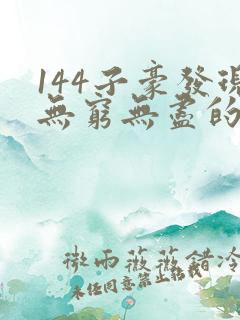 144子豪發現
無窮無盡的
微雨薇薇錯冷
未任同意禁止轉載